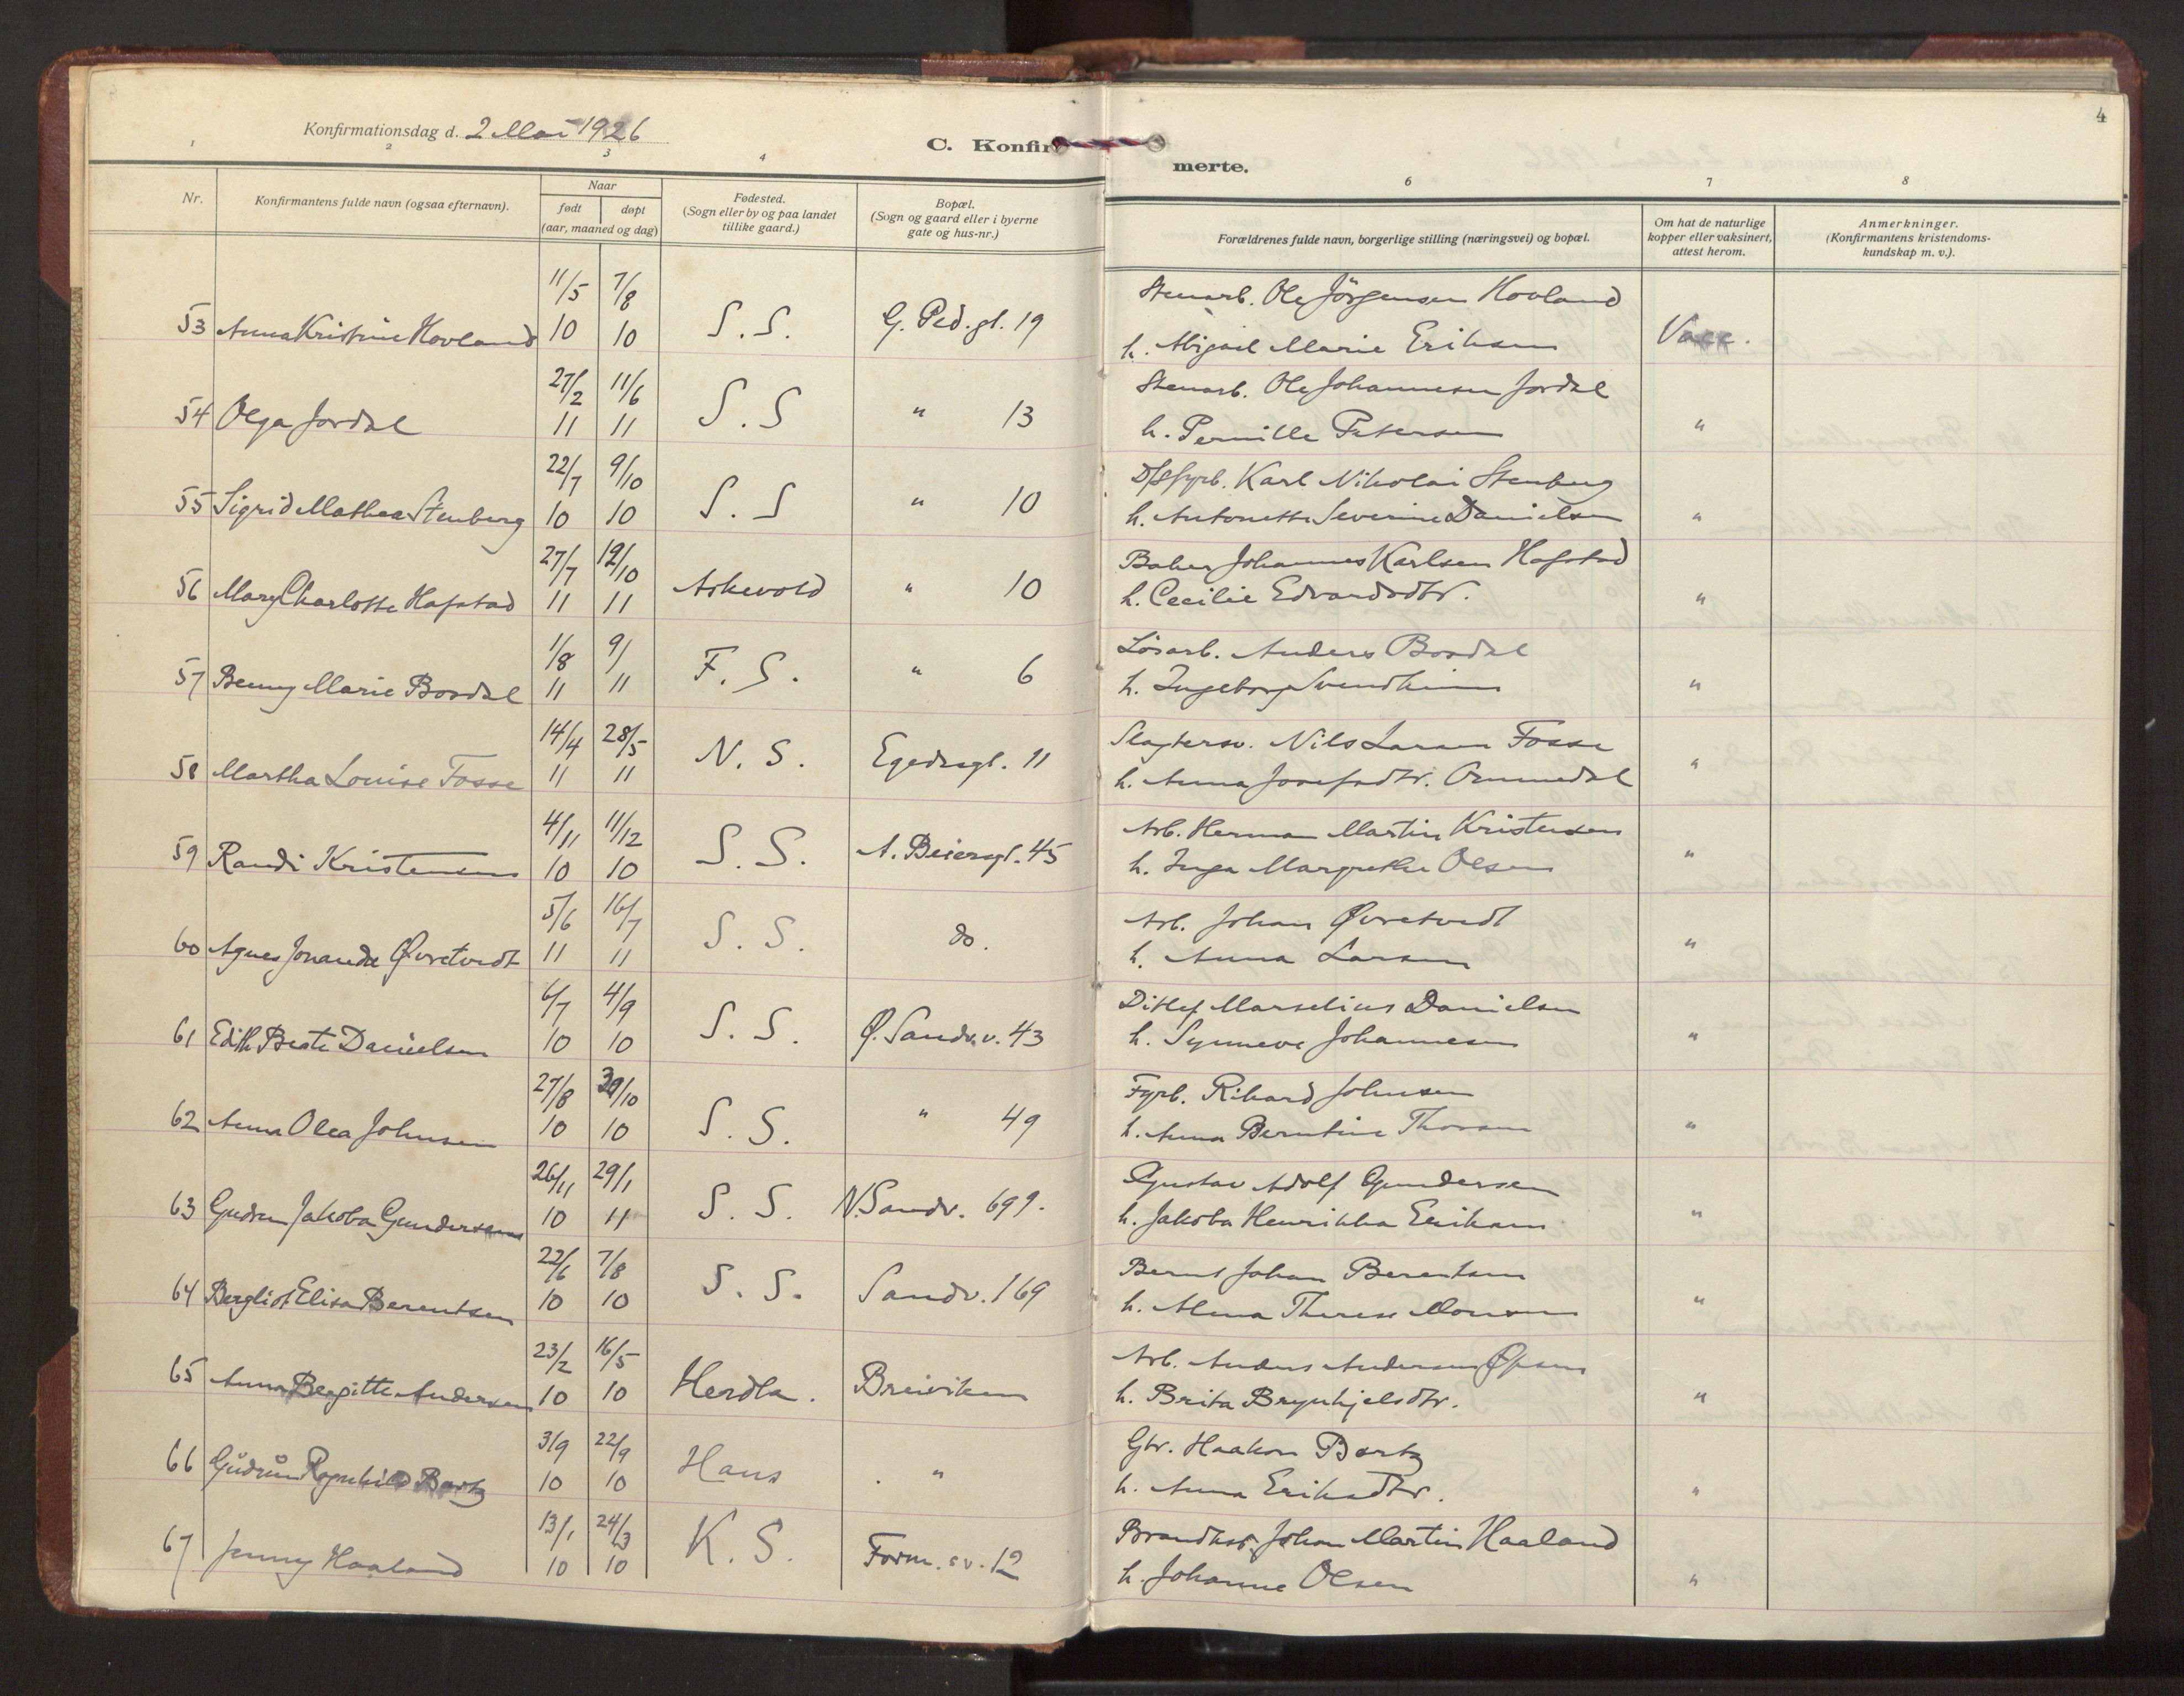 4
Konfirmationsdag d. 2 Mai 1926
C. Konfirmerte.
1 2 3 4 6 7 8
Nr. Konfirmantens fulde navn (ogsaa efternavn). Naar født døpt (aar, maaned og dag) Fødested. (Sogn eller by og paa landet tillike gaard.) Bopæl. (Sogn og gaard eller i byerne gate og hus-nr.) Forældrenes fulde navn, borgerlige stilling (næringsvei) og bopæl. Om hat de naturlige kopper eller vaksinert, attest herom. Anmerkninger. (Konfirmantens kristendoms-kundskap m. v.).
11/5 7/8 Stenarb. Ole Jörgensen Hovland
53 Anna Kristine Hovland 10 10 S. S. G. Ped. gt. 19 h. Abigael Marie Eriksen Vacc.
27/2 11/6 Stenarb. Ole Johannesen Jordal
54 Olga Jordal 11 11 S. S " 13 h. Pernille Petersen "
22/7 9/10 D/S fyrb. Karl Nikolai Stenberg
55 Sigrid Mathea Stenberg 10 10 S. S " 10 h. Antonette Severine Danielsen "
27/7 19/10 Baker Johannes Karlsen Hafstad
56 Mary Charlotte Hafstad 11 11 Askevold " 10 h. Cecilie Edvardsdtr. "
1/8 9/ Lösarb. Anders Boodal
57 Benny Marie Boodal 11 11 F. S. " 6 h. Ingeborg Svendheim "
14/4 28/5 Slagtersv. Nils Larsen Fosse
58 Martha Louise Fosse 11 11 N. S. Egedesgt. 11 h. Anna Josefsdtr. Ommedal "
4/11 11/12 Arb. Herman Martin Kristensen
59 Randi Kristensen 10 10 S. S. A. Beiersgt. 45 h. Inga Margrethe Olsen "
5/6 16/7 Arb. Johan Øvretvedt
60 Agnes Jonanda Øvretvedt 11 11 S. S. do. h. Anna Larsen "
6/7 4/9 Ditlef Marselius Danielsen
61 Edith Beate Danielsen 10 10 S. S. Ø. Sandv. v. 43 h. Synneve Johannesen "
27/8 30/10 Fyrb. Rikard Johnsen
62 Anna Olea Johnsen 10 10 S. S. " 49 h. Anna Berntine Thorsen "
26/11 29/1 Gustav Adolf Gundersen
63 Gudrun Jakoba Gundersen 10 11 S. S. N. Sandv. 699. h. Jakoba Henrikka Eriksen "
22/6 7/8 Bernt Johan Berentsen
64 Bergliot Elisa Berentsen 10 10 S. S. Sandv. 169 h. Alma Therese Monsen "
23/2 16/5 Arb. Anders Andersen
65 Anna Bergitte Andersen 10 10 Herdla. Breiviken h. Brita Brynhjelsdtr. "
3/9 22/9 Gbr. Haakon Bartz
66 Gudrun Ragnhild Bartz 10 10 Haus " h. Anna Eriksdtr. "
13/1 24/3 Brandkst. Johan Martin Haaland
67 Jenny Haaland 10 10 K. S. Form. sv. 12 h. Johanne Olsen "